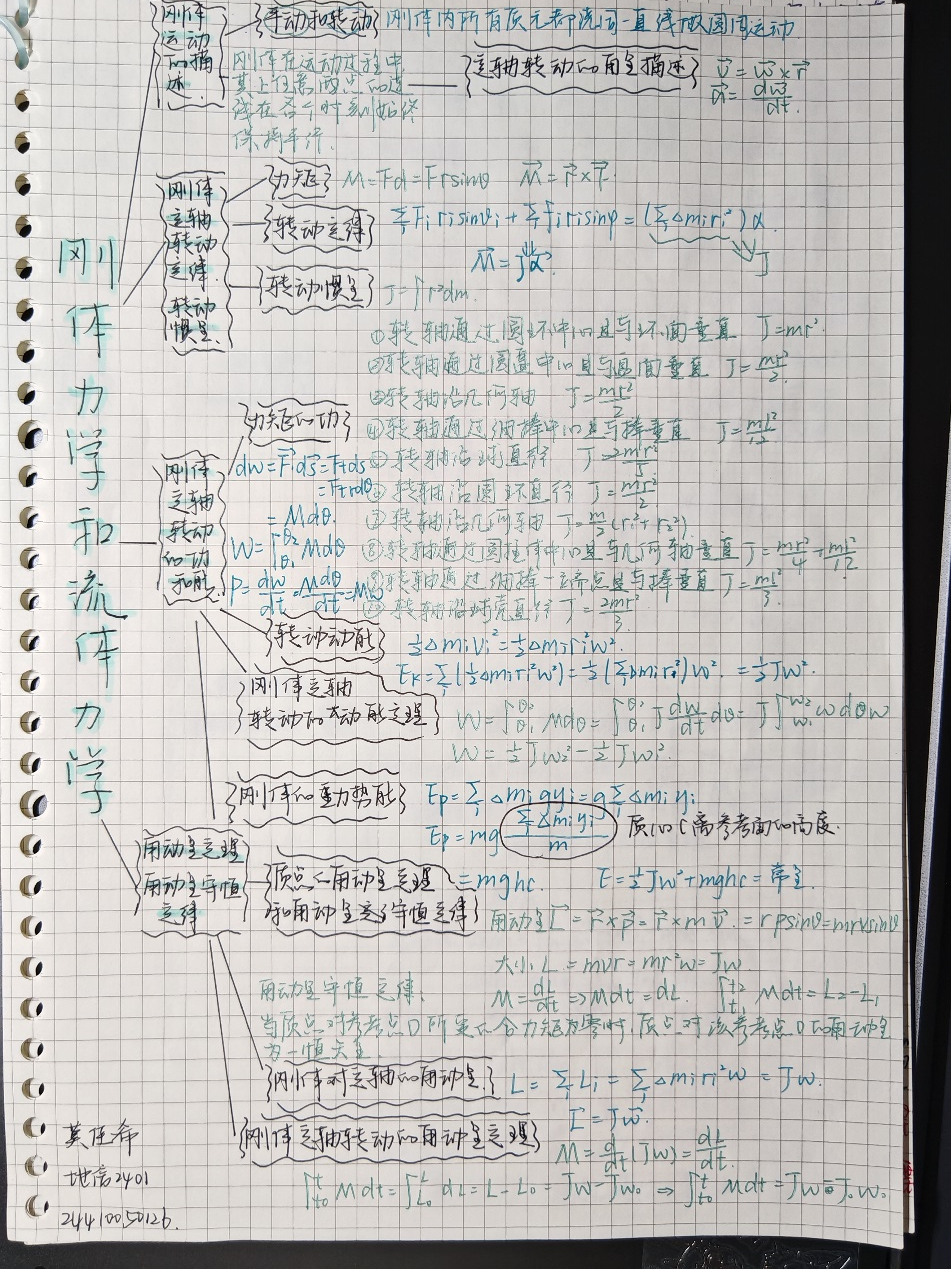 刚体力学和流体力学
刚体运动的描述.
平动和转动
刚体内所有质元都绕同一直线做圆周运动.
刚体在运动过程中
其上任意两点的连
线在各个时刻始终
保持平行.
定轴转动的角量描述
v⃗ = w⃗ × r⃗
α⃗ = dw⃗/dt.
刚体定轴转动定律.转动惯量.
力矩
M=Fd=Frsinθ M⃗=r⃗×F⃗.
转动定律
∑Fi ri sinθi + ∑fi ri sinφ = (∑Δmiri²)α
J
M⃗=Jα⃗.
转动惯量
J=∫r²dm.
①转轴通过圆环中心且与环面垂直 J=mr².
②转轴通过圆盘中心且与盘面垂直 J=mr²/2.
③转轴沿几何轴 J=mr²/2
④转轴通过细棒中心且与棒垂直 J=ml²/12
⑤转轴沿球直径 J=2mr²/5
⑥转轴沿圆环直径 J=mr²/2
⑦转轴沿几何轴 J=m/2(r₁²+r₂²)
⑧转轴通过圆柱体中心且与几何轴垂直 J=mr²/4+ml²/12
⑨转轴通过细棒一端点且与棒垂直 J=ml²/3.
⑩转轴沿球壳直径 J=2mr²/3.
刚体定轴转动的功和能
力矩的功
dw=F⃗·ds⃗=Ftds
=Ftrdθ
=Mdθ.
W=∫θ₁^θ₂ Mdθ
P=dw/dt=Mdθ/dt=Mw
转动动能
½Δmivi²=½Δmiri²w².
Ek=∑(½Δmiri²w²)=½(∑Δmiri²)w². =½Jw².
刚体定轴
转动的动能定理
W=∫θ₁^θ₂ Mdθ=∫θ₁^θ₂ J dw/dt dθ=J∫w₁^w₂ w dw
W=½Jw₂²-½Jw₁².
刚体的重力势能
Ep=∑Δmigyi=g∑Δmiyi
Ep=mg ∑Δmiyi/m
质心C离参考面的高度.
=mghc. E=½Jw²+mghc=常量.
角动量定理
角动量守恒
定律
质点的角动量定理
和角动量守恒定律
角动量L⃗=r⃗×p⃗=r⃗×mv⃗.=rpsinθ=mrvsinθ
大小L=mvr=mr²w=Jw.
M=dL/dt⇒Mdt=dL. ∫t₁^t₂ Mdt=L₂-L₁
角动量守恒定律:
当质点对参考点O所受的合力矩为零时,质点对该参考点O的角动量
为一恒矢量.
刚体对定轴的角动量.
L=∑Li=∑Δmiri²w=Jw.
L⃗=Jw⃗.
刚体定轴转动的角动量定理
M=d/dt(Jw)=dL/dt.
∫t₀^t Mdt=∫L₀^L dL=L-L₀=Jw-Jw₀ ⇒ ∫t₀^t Mdt=Jw-J₀w₀.
地信2401
24410050126.